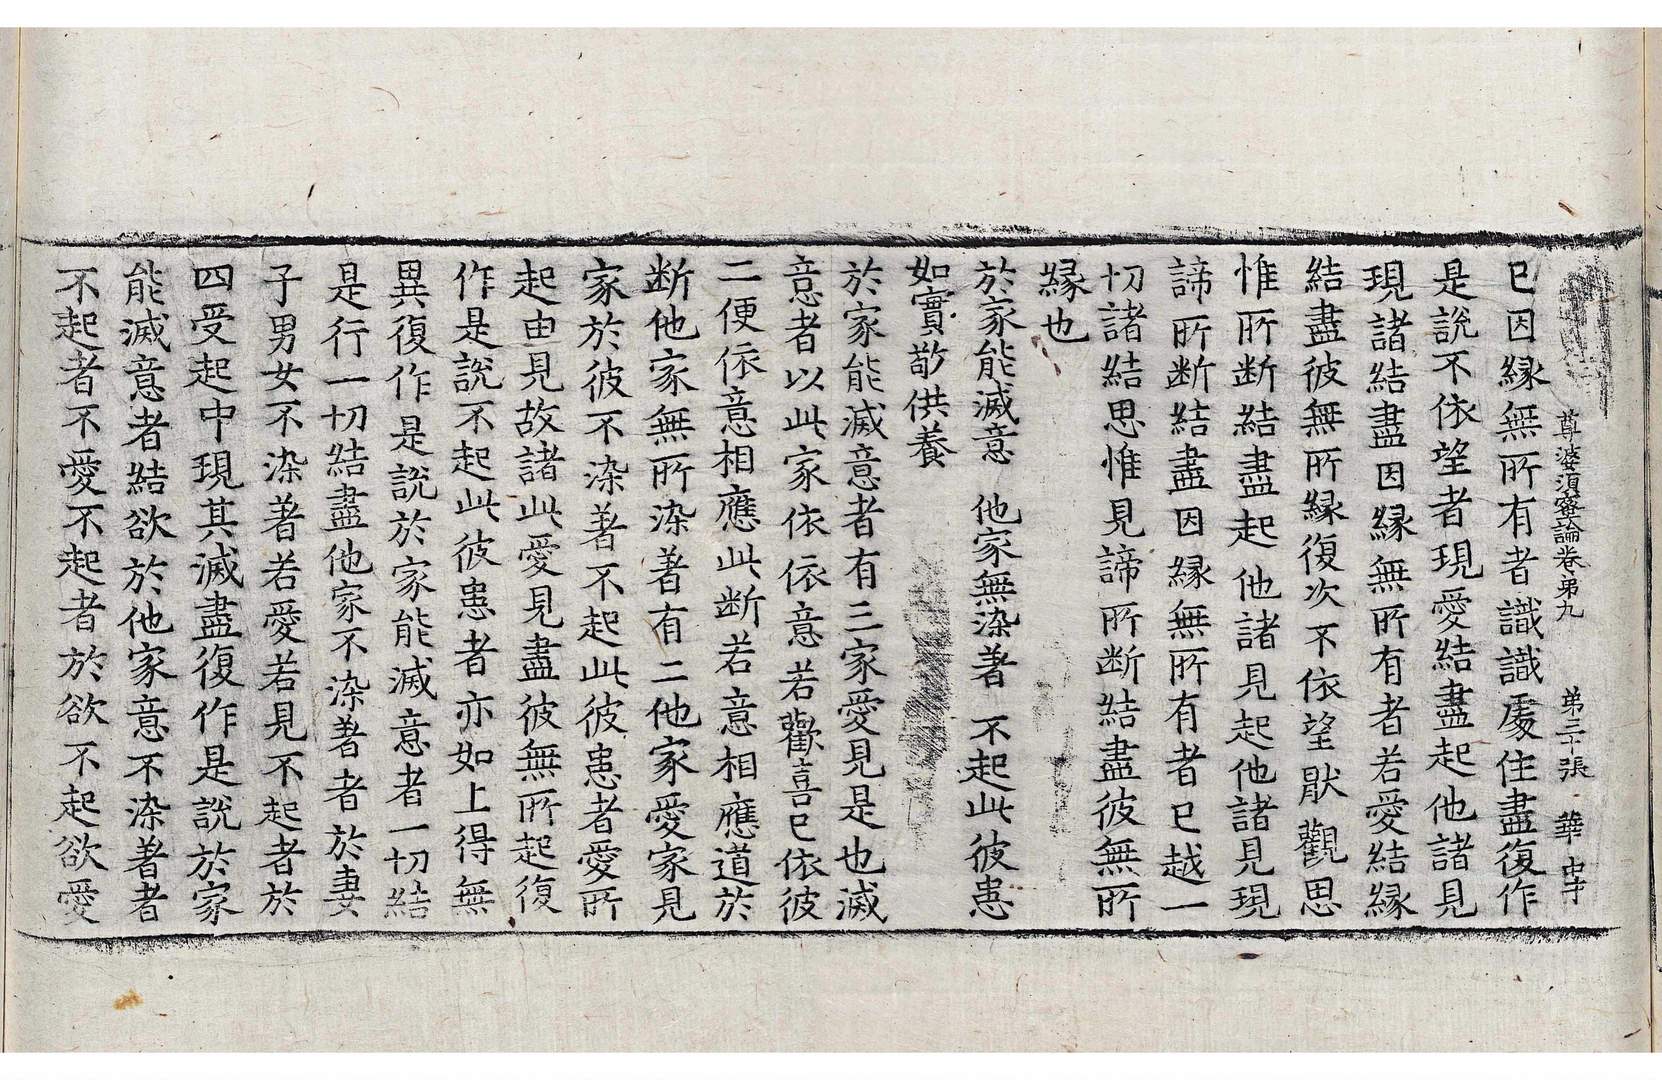 尊婆須蜜論卷第九 第三十張 華
已因緣無所有者識識處住盡復作
是說不依望者現愛結盡起他諸見
現諸結盡因緣無所有者若愛結緣
結盡彼無所緣復次不依望猒觀思
惟所断結盡起他諸見起他諸見現
諦所断結盡因緣無所有者已越一
切諸結思惟見諦所断結盡彼無所
緣也
於家能滅意 他家無染著 不起此彼恚
如實敬供養
於家能滅意者有三家愛見是也滅
意者以此家依依意若歡喜已依彼
二便依意相應此断若意相應道於
断他家無所染著有二他家愛家見
家於彼不染著不起此彼恚者愛所
起由見故諸此愛見盡彼無所起復
作是說不起此彼恚者亦如上得無
異復作是説於家能滅意者一切結
是行一切結盡他家不染著者於妻
子男女不染著若愛若見不起者於
四受起中現其滅盡復作是說於家
能滅意者結欲於他家意不染著者
不起者不愛不起者於欲不起欲愛